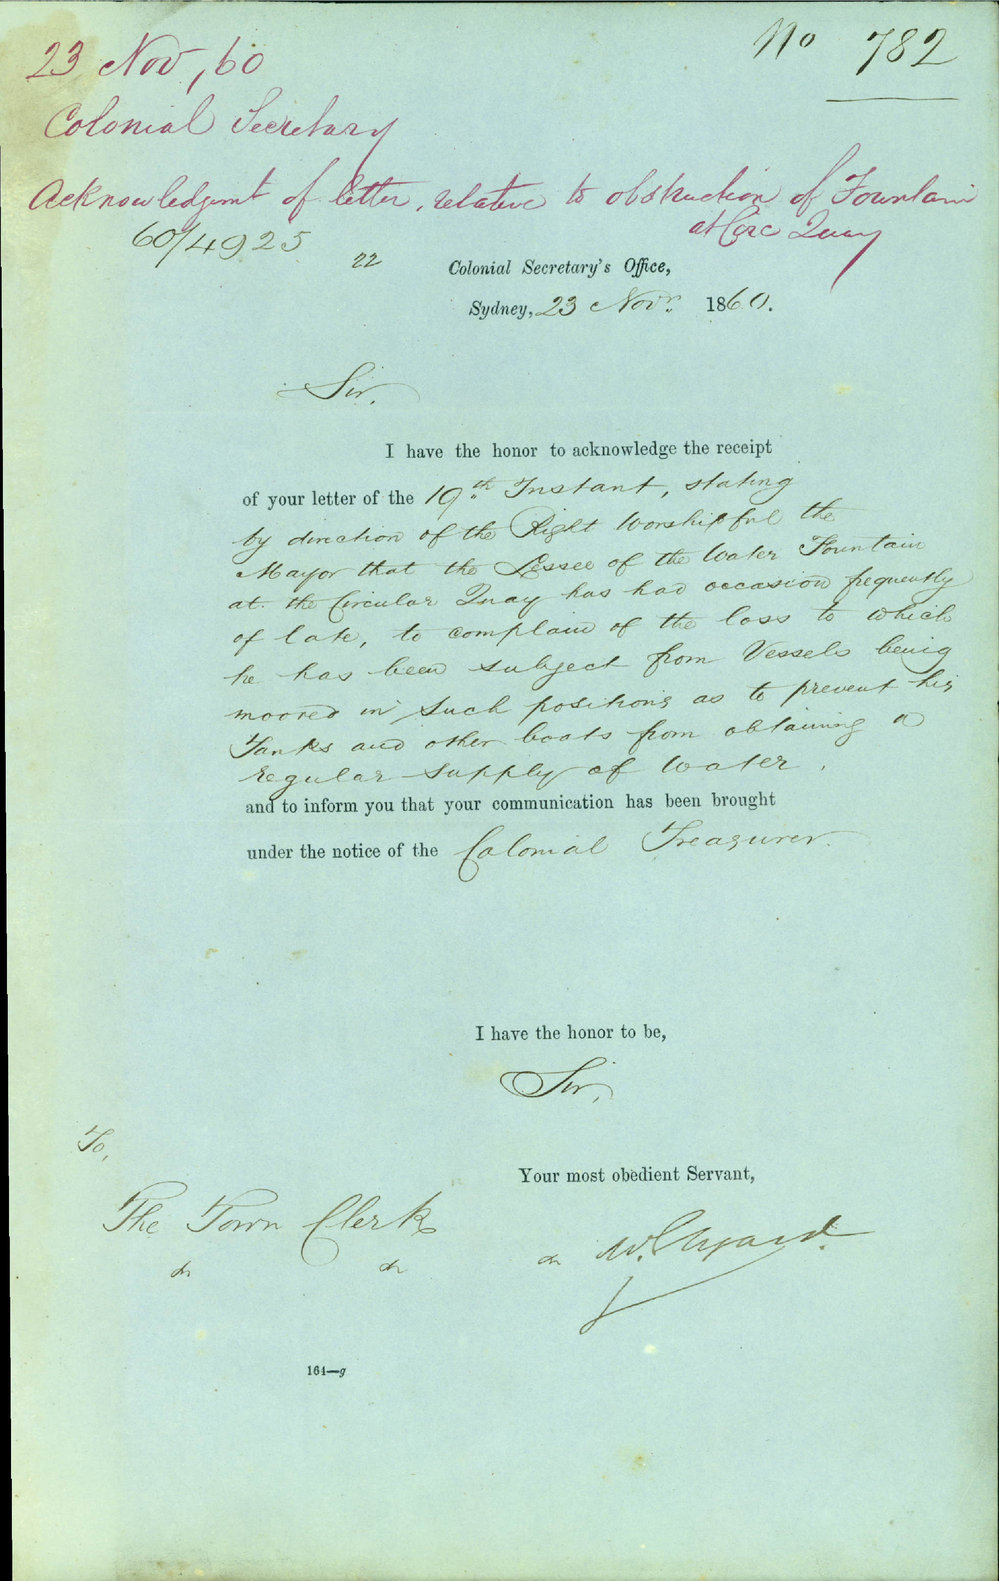 No 782
23 Nov, 60
Colonial Secretary
Acknowledgmt of letter, relative to obstruction of Fountain
at Circ Quay
60/4925
22
Colonial Secretary's Office,
Sydney, 23 Novr. 1860.
Sir,
I have the honor to acknowledge the receipt
of your letter of the 19th Instant, stating
by direction of the Right Worshipful the
Mayor that the Lessee of the Water Fountain
at the Circular Quay has had occasion frequently
of late, to complain of the loss to which
he has been subject from Vessels being
moored in such positions as to prevent his
Tanks and other boats from obtaining a
regular supply of water.
and to inform you that your communication has been brought
under the notice of the Colonial Treasurer.
I have the honor to be,
Sir,
Your most obedient Servant,
To,
The Town Clerk
164—g